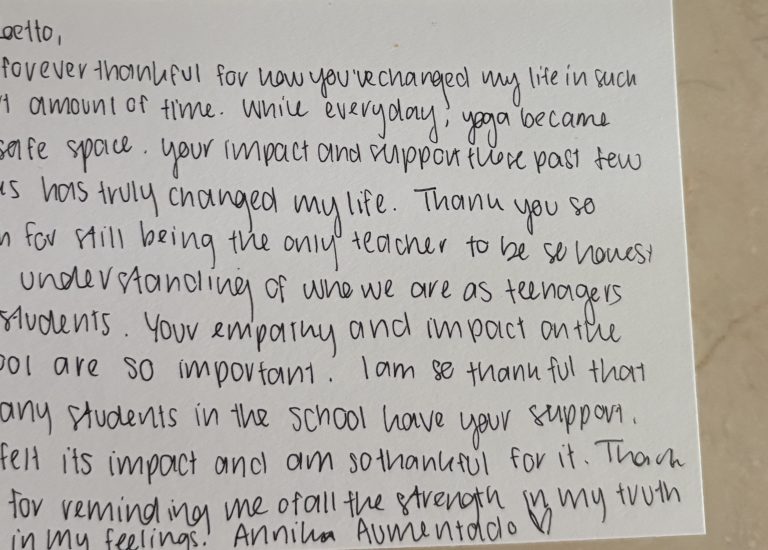 oetto,
forever thankful for how you've changed my life in such
amount of time. While everyday, yoga became
safe space. your impact and support these past few
us has truly changed my life. Thank you so
h for still being the only teacher to be so honest
understanding of who we are as teenagers
students. Your empathy and impact on the
ool are so important. I am so thankful that
any students in the school have your support.
felt its impact and am so thankful for it. Thank
for reminding me of all the strength in my truth
in my feelings. Annika Aumentado ♡